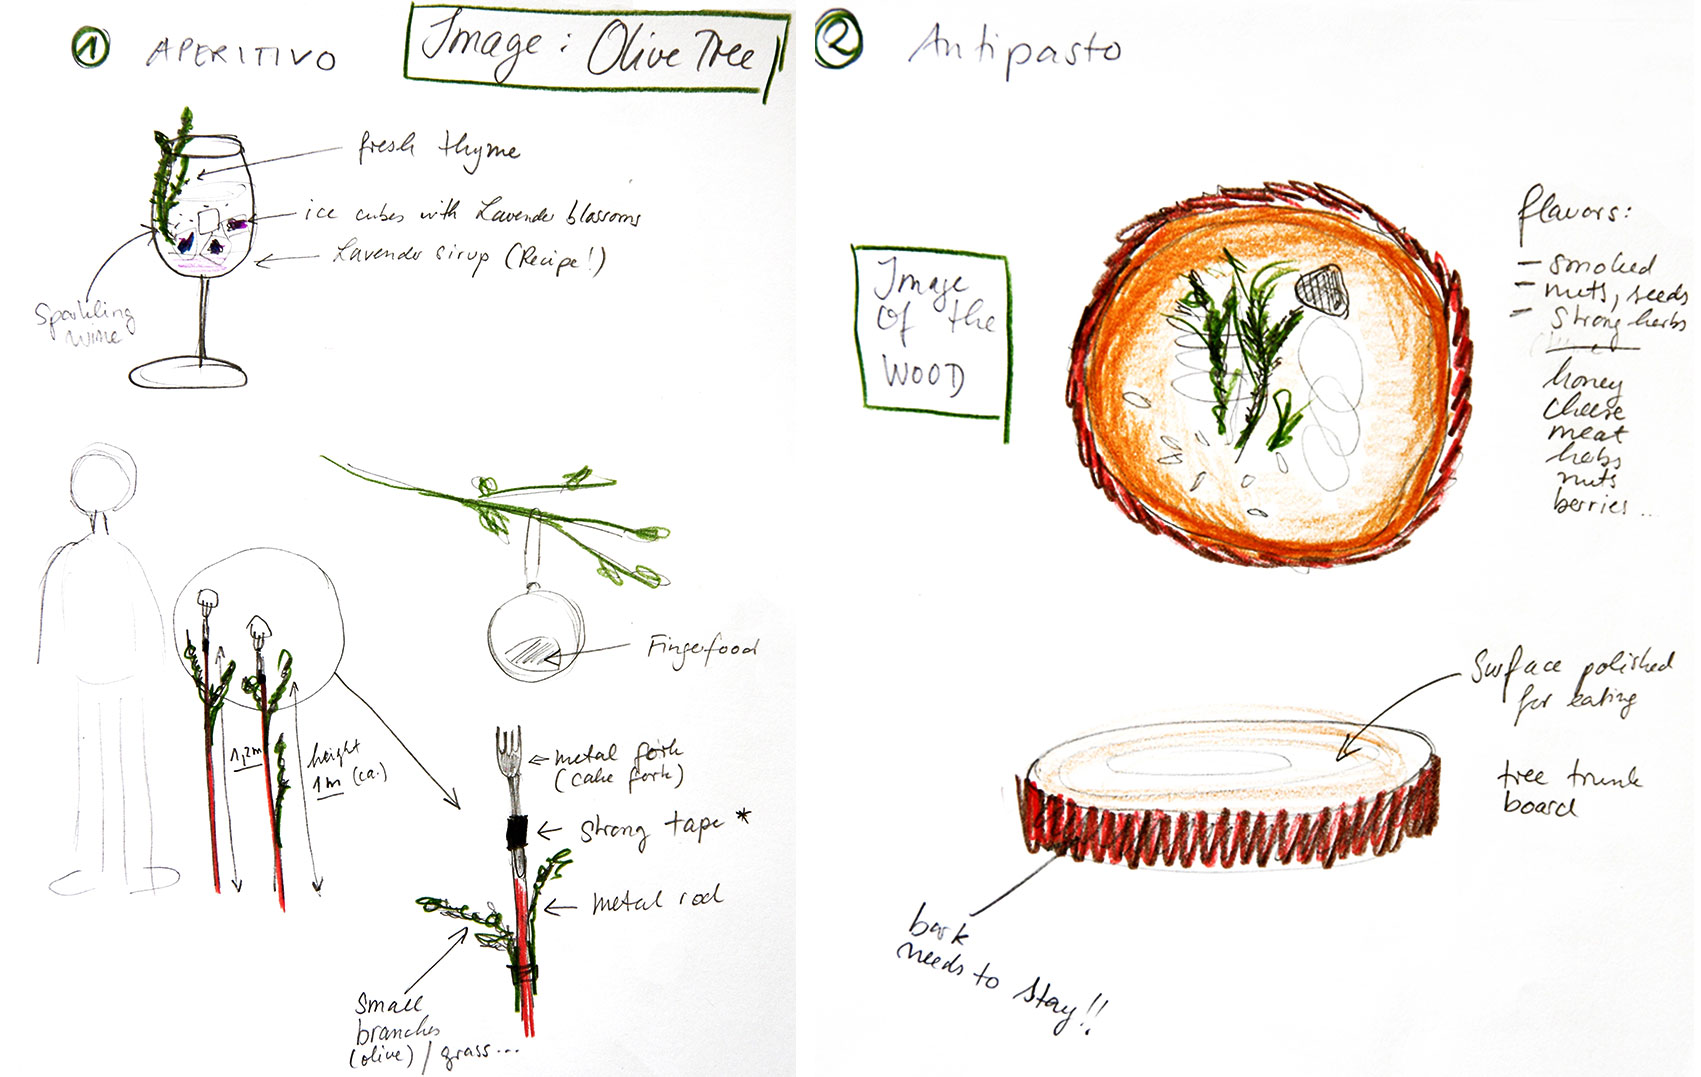 1 APERITIVO
Image: Olive Tree
fresh thyme
ice cubes with Lavender blossoms
Lavender sirup (Recipe!)
Sparkling
wine
Fingerfood
1,2m
height
1m (ca.)
metal fork
(cake fork)
strong tape *
metal rod
Small
branches
(olive) / grass...
2 Antipasto
Image
of the
WOOD
flavors:
- smoked
- nuts, seeds
- strong herbs
honey
cheese
meat
herbs
nuts
berries...
Surface polished
for eating
tree trunk
board
bark
needs to stay!!